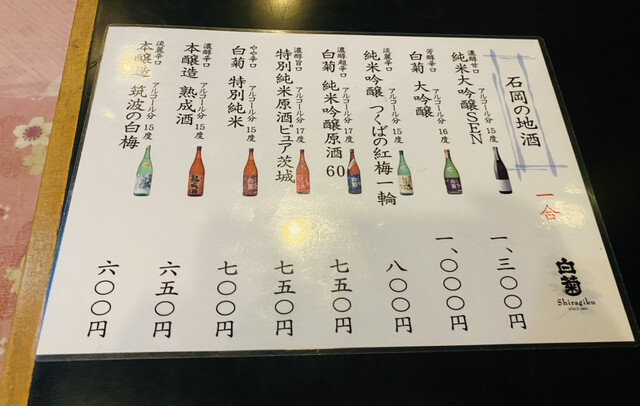 石岡の地酒
一合
濃醇甘口 アルコール分 15度
純米大吟醸SEN
一、三〇〇円
芳醇辛口 アルコール分 16度
白菊 大吟醸
一、〇〇〇円
淡麗辛口 アルコール分 15度
純米吟醸 つくばの紅梅一輪
八〇〇円
濃醇超辛口 アルコール分 17度
白菊 純米吟醸原酒60
七五〇円
濃醇旨口 アルコール分 17度
特別純米原酒ピュア茨城
七五〇円
やや辛口 アルコール分 15度
白菊 特別純米
七〇〇円
濃醇辛口 アルコール分 15度
本醸造 熟成酒
六五〇円
淡麗辛口 アルコール分 15度
本醸造 筑波の白梅
六〇〇円
白菊
Shiragiku